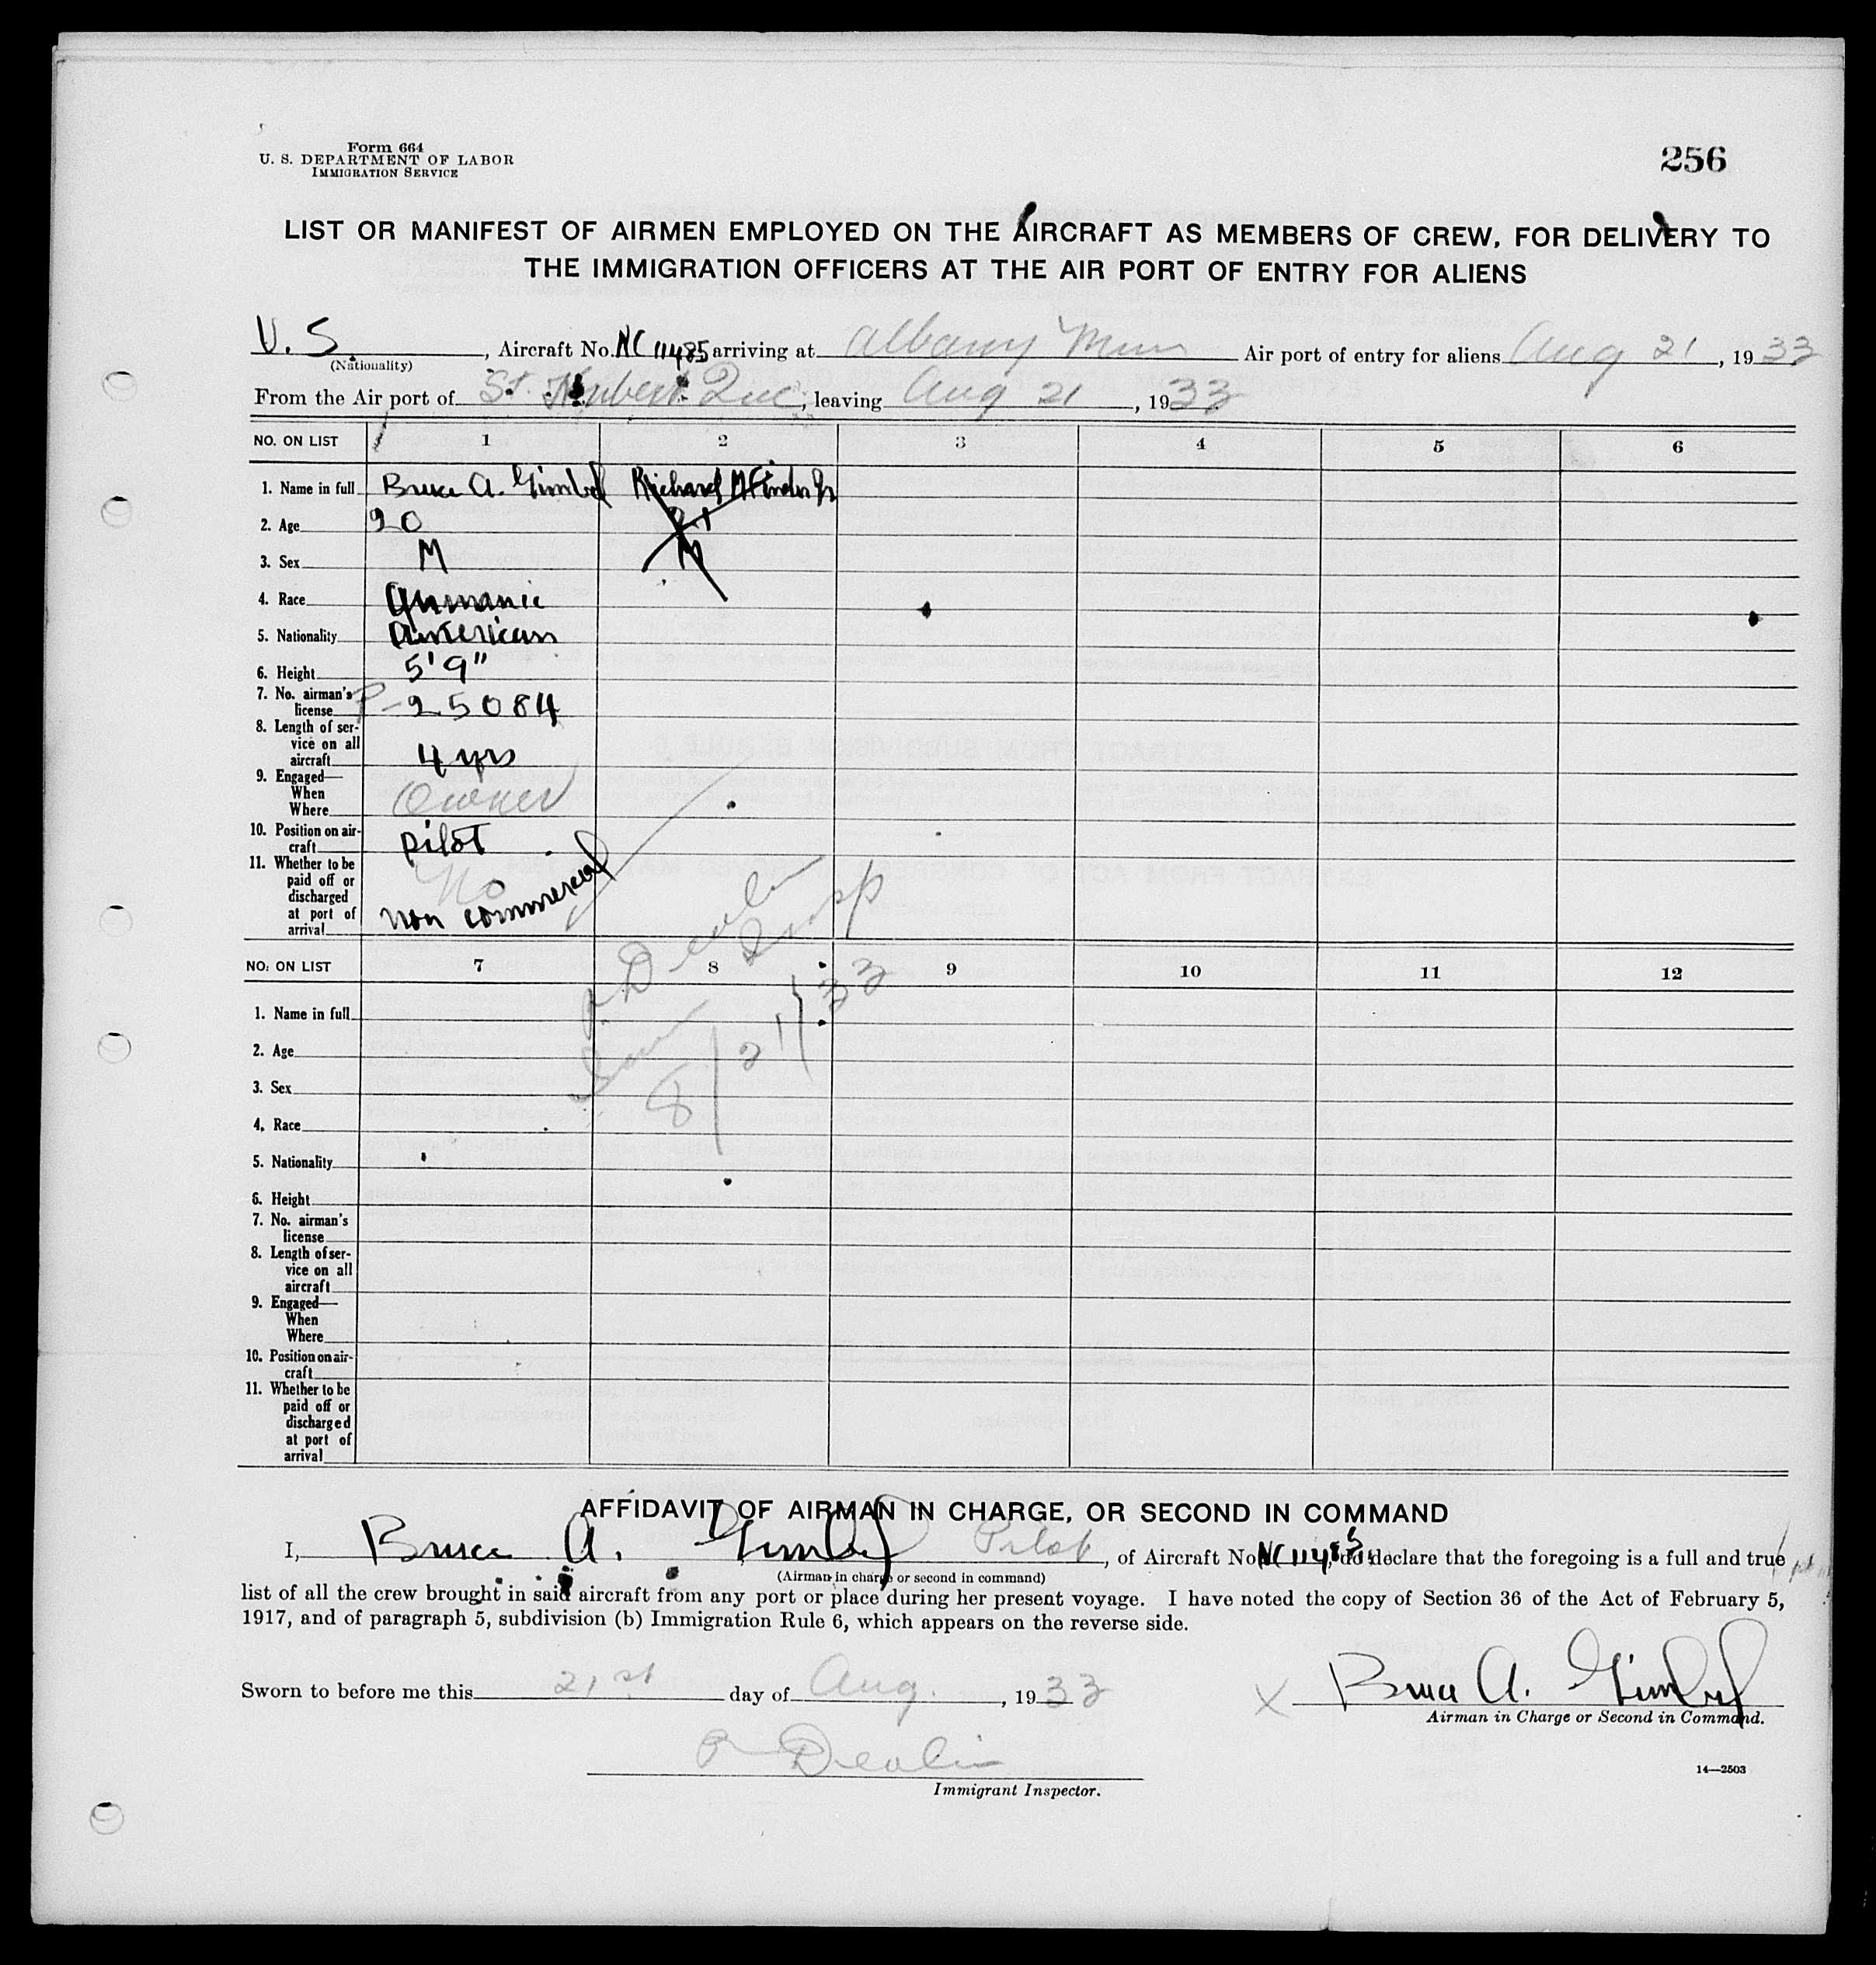 Form 664
U. S. DEPARTMENT OF LABOR
IMMIGRATION SERVICE
256
LIST OR MANIFEST OF AIRMEN EMPLOYED ON THE AIRCRAFT AS MEMBERS OF CREW, FOR DELIVERY TO
THE IMMIGRATION OFFICERS AT THE AIR PORT OF ENTRY FOR ALIENS
U. S. , Aircraft No. NC 11485 arriving at Albany Mun Air port of entry for aliens Aug 21, 1933
(Nationality)
From the Air port of St. Hubert Que, leaving Aug 21, 1933
NO. ON LIST 1 2 3 4 5 6
1. Name in full Bruce A. Gimbel Richard
2. Age 20 21
3. Sex M M
4. Race Germanic
5. Nationality American
6. Height 5'9"
7. No. airman's
license P-25084
8. Length of ser-
vice on all
aircraft 4 yrs
9. Engaged—
When
Where Owner
10. Position on air-
craft pilot
11. Whether to be
paid off or
discharged
at port of
arrival No
non commercial
P Devlin
Insp
8/21/33
NO. ON LIST 7 8 9 10 11 12
1. Name in full
2. Age
3. Sex
4. Race
5. Nationality
6. Height
7. No. airman's
license
8. Length of ser-
vice on all
aircraft
9. Engaged—
When
Where
10. Position on air-
craft
11. Whether to be
paid off or
discharged
at port of
arrival
AFFIDAVIT OF AIRMAN IN CHARGE, OR SECOND IN COMMAND
I, Bruce A. Gimbel Pilot, of Aircraft No. NC 11485, do declare that the foregoing is a full and true
(Airman in charge or second in command)
list of all the crew brought in said aircraft from any port or place during her present voyage. I have noted the copy of Section 36 of the Act of February 5,
1917, and of paragraph 5, subdivision (b) Immigration Rule 6, which appears on the reverse side.
Sworn to before me this 21st day of Aug., 1933
X Bruce A. Gimbel
Airman in Charge or Second in Command.
P Devlin
Immigrant Inspector.
14—2503